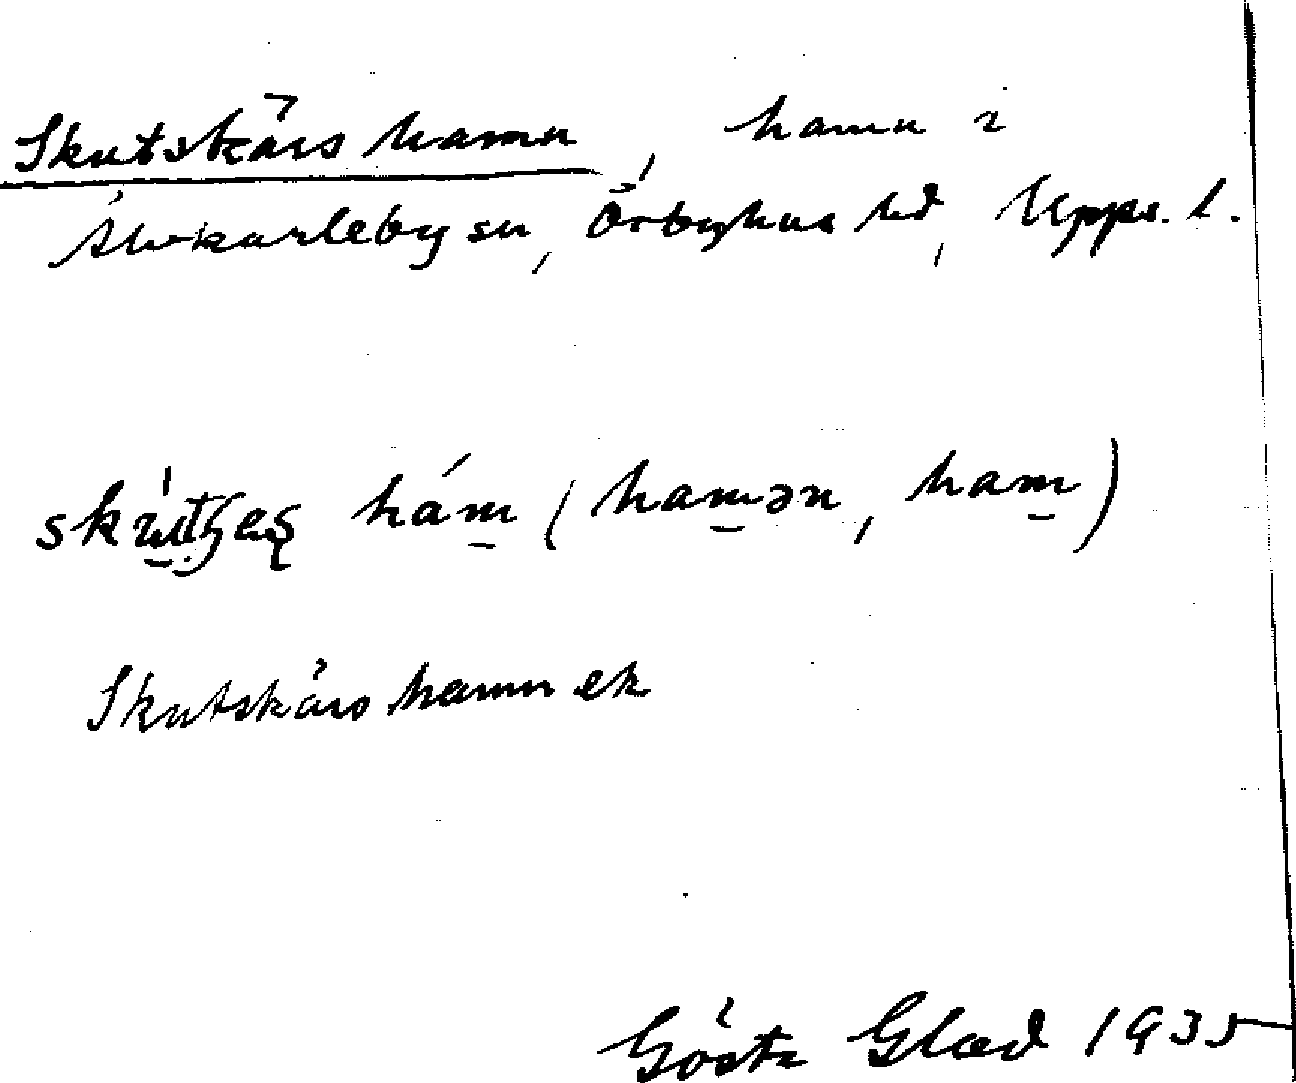 Skutskärs hamn, hamn i
Älvkarleby sn, Örbyhus hd, Upps. l.
hám (hamən, ham)
Skutskärs hamn ek
Gösta Glad 1935